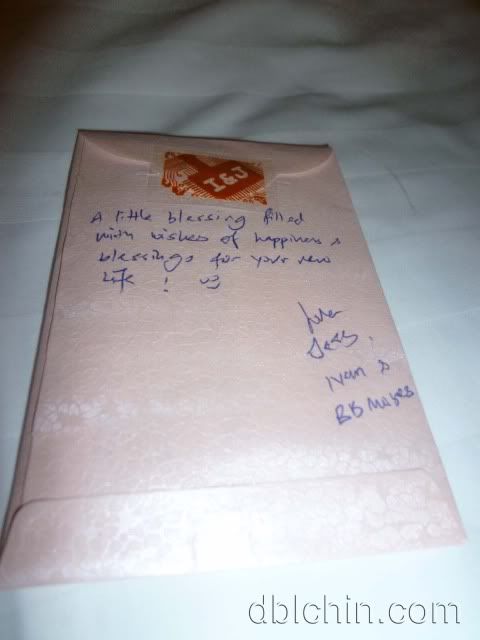 I&J
A little blessing filled
with wishes of happiness &
blessings for your new
life !
Ivan &
BB
dblchin.com